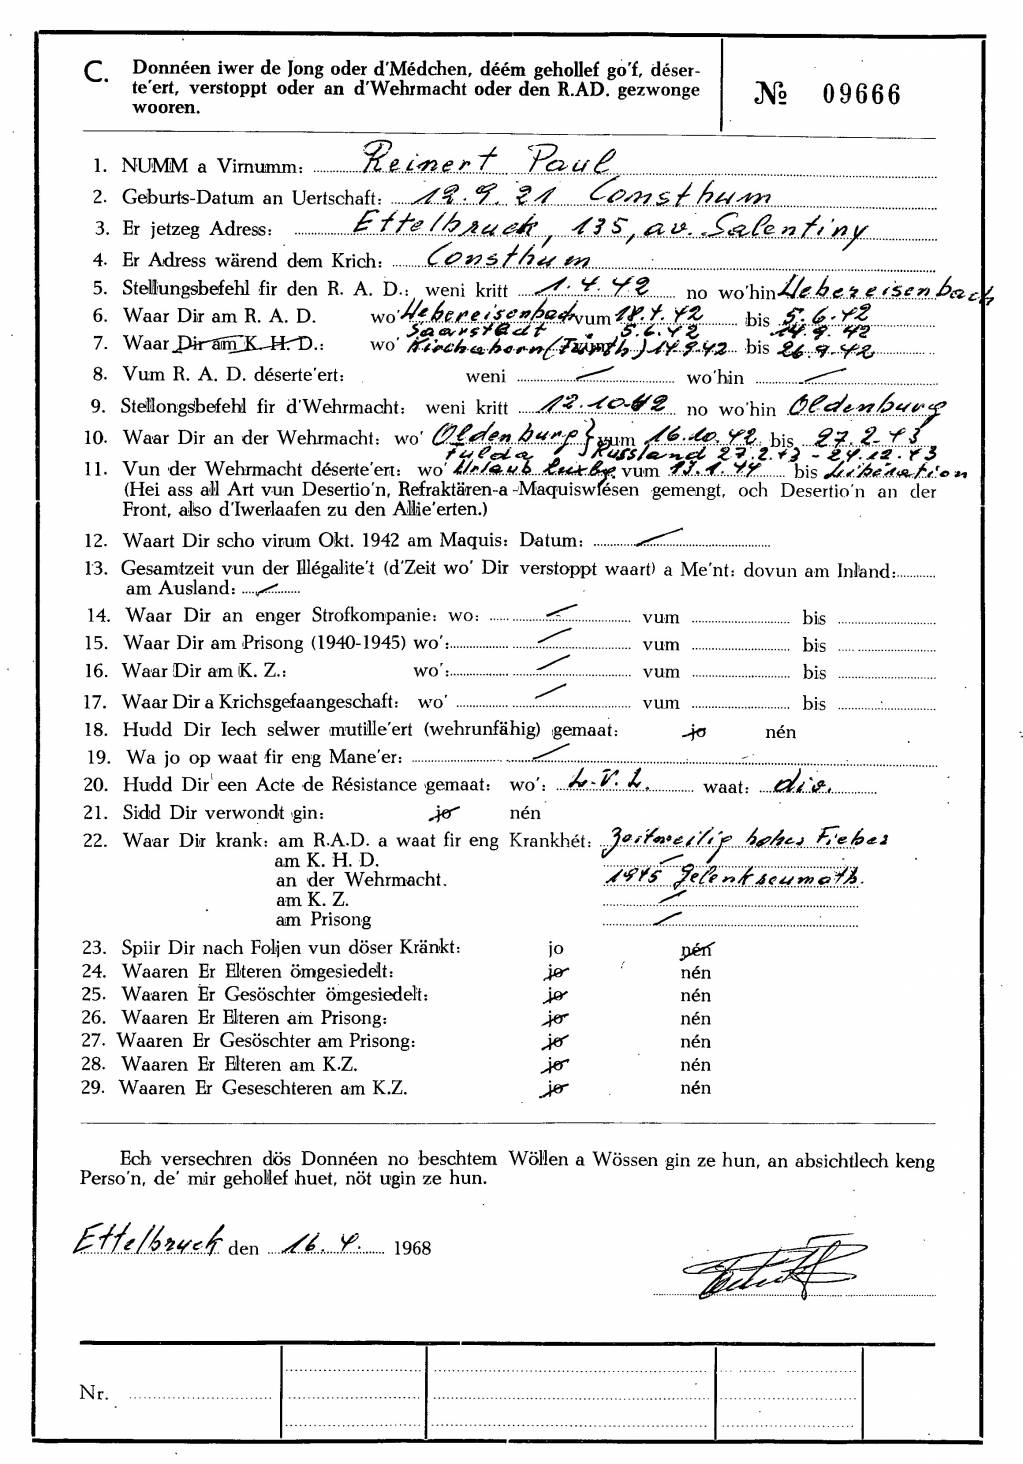 C. Donnéen iwer de Jong oder d'Médchen, déém gehollef go'f, déser-
te'ert, verstoppt oder an d'Wehrmacht oder den R.AD. gezwonge
wooren.
№ 09666
1. NUMM a Virnumm: Reinert Paul
2. Geburts-Datum an Uertschaft: 12.9.21 Consthum
3. Er jetzeg Adress: Ettelbruck, 135, av. Salentiny
4. Er Adress wärend dem Krich: Consthum
5. Stellungsbefehl fir den R. A. D.: weni kritt 1.4.42 no wo'hin Uebereisenbach
6. Waar Dir am R. A. D. wo' Uebereisenbach vum 18.4.42 bis 5.6.42
Saarstedt 5.6.42 14.9.42
7. Waar Dir am K. H. D.: wo' Kirchahorn 14.9.42 bis 26.9.42
8. Vum R. A. D. déserte'ert: weni wo'hin
9. Stellongsbefehl fir d'Wehrmacht: weni kritt 12.10.42 no wo'hin Oldenburg
10. Waar Dir an der Wehrmacht: wo' Oldenburg } vum 16.10.42. bis 27.2.43
Fulda } Russland 27.2.43 - 24.12.43
11. Vun der Wehrmacht déserte'ert: wo' Urlaub Luxbg. vum 13.1.44 bis Liberation
(Hei ass all Art vun Desertio'n, Refraktären-a -Maquiswiesen gemengt, och Desertio'n an der
Front, also d'Iwerlaafen zu den Allie'erten.)
12. Waart Dir scho virum Okt. 1942 am Maquis: Datum:
13. Gesamtzeit vun der Illégalite't (d'Zeit wo' Dir verstoppt waart) a Me'nt: dovun am Inland:
am Ausland:
14. Waar Dir an enger Strofkompanie: wo: vum bis
15. Waar Dir am Prisong (1940-1945) wo': vum bis
16. Waar Dir am K. Z.: wo': vum bis
17. Waar Dir a Krichsgefaangeschaft: wo' vum bis
18. Hudd Dir Iech selwer mutille'ert (wehrunfähig) gemaat: jo nén
19. Wa jo op waat fir eng Mane'er:
20. Hudd Dir een Acte de Résistance gemaat: wo': L.V.L. waat: div.
21. Sidd Dir verwondt gin: jo nén
22. Waar Dir krank: am R.A.D. a waat fir eng Krankhét: Zeitweilig hohes Fieber
am K. H. D.
an der Wehrmacht. 1945 Gelenkreumath.
am K. Z.
am Prisong
23. Spiir Dir nach Foljen vun döser Kränkt: jo nén
24. Waaren Er Elteren ömgesiedelt: jo nén
25. Waaren Er Gesöschter ömgesiedelt: jo nén
26. Waaren Er Elteren am Prisong: jo nén
27. Waaren Er Gesöschter am Prisong: jo nén
28. Waaren Er Elteren am K.Z. jo nén
29. Waaren Er Geseschteren am K.Z. jo nén
Ech versechren dös Donnéen no beschtem Wöllen a Wössen gin ze hun, an absichtlech keng
Perso'n, de' mir gehollef huet, nöt ugin ze hun.
Ettelbruck den 16. 4. 1968
Nr.